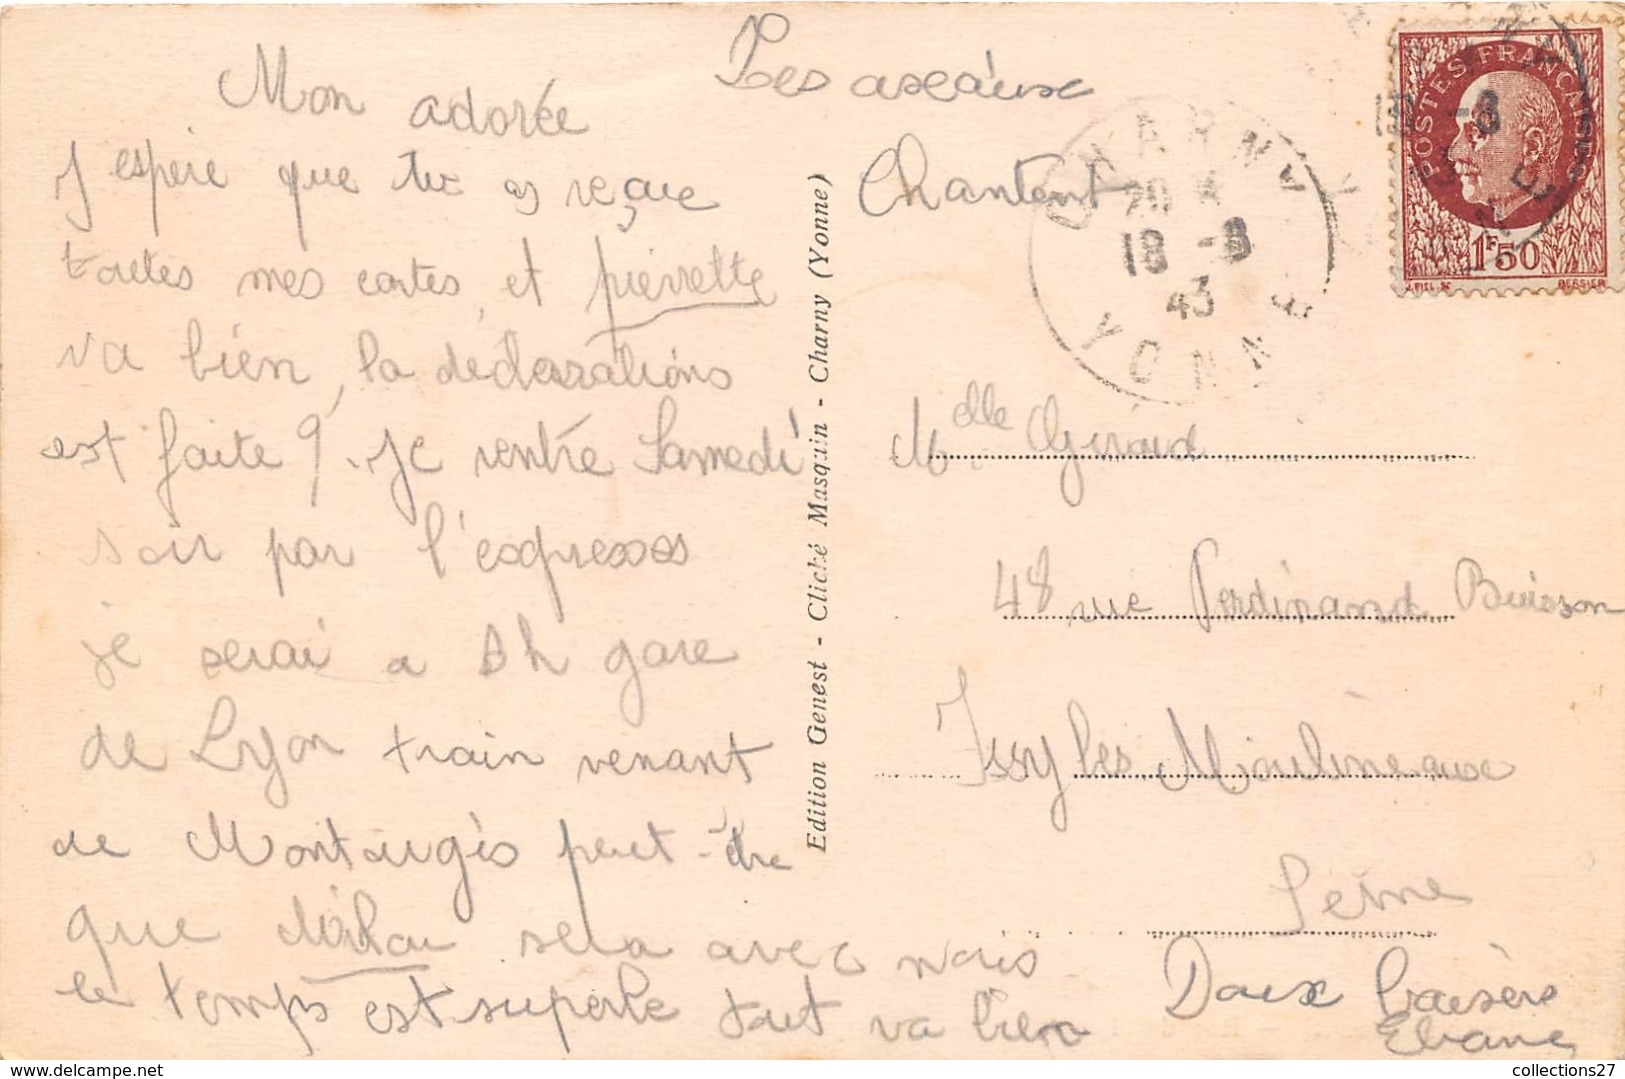 Mon adorée
J'espère que tu as reçue
toutes mes cartes, et pierrette
va bien, la déclarations
est faite ? Je rentre Samedi
soir par l'express
je serai a 8h gare
de Lyon train venant
de Montargis peut-être
que sera avec nous
le temps est superbe tout va bien
Les oiseaux
Chantent
Edition Genest - Cliché Masquin - Charny (Yonne)
CHARNY
20 H
18 -8
43
YONNE
POSTES FRANÇAISES
1F50
J. PIEL SC BERSIER
Mdlle Giraud
48 rue Ferdinand Buisson
Issy les Moulineaux
Seine
Doux baisers
collections27